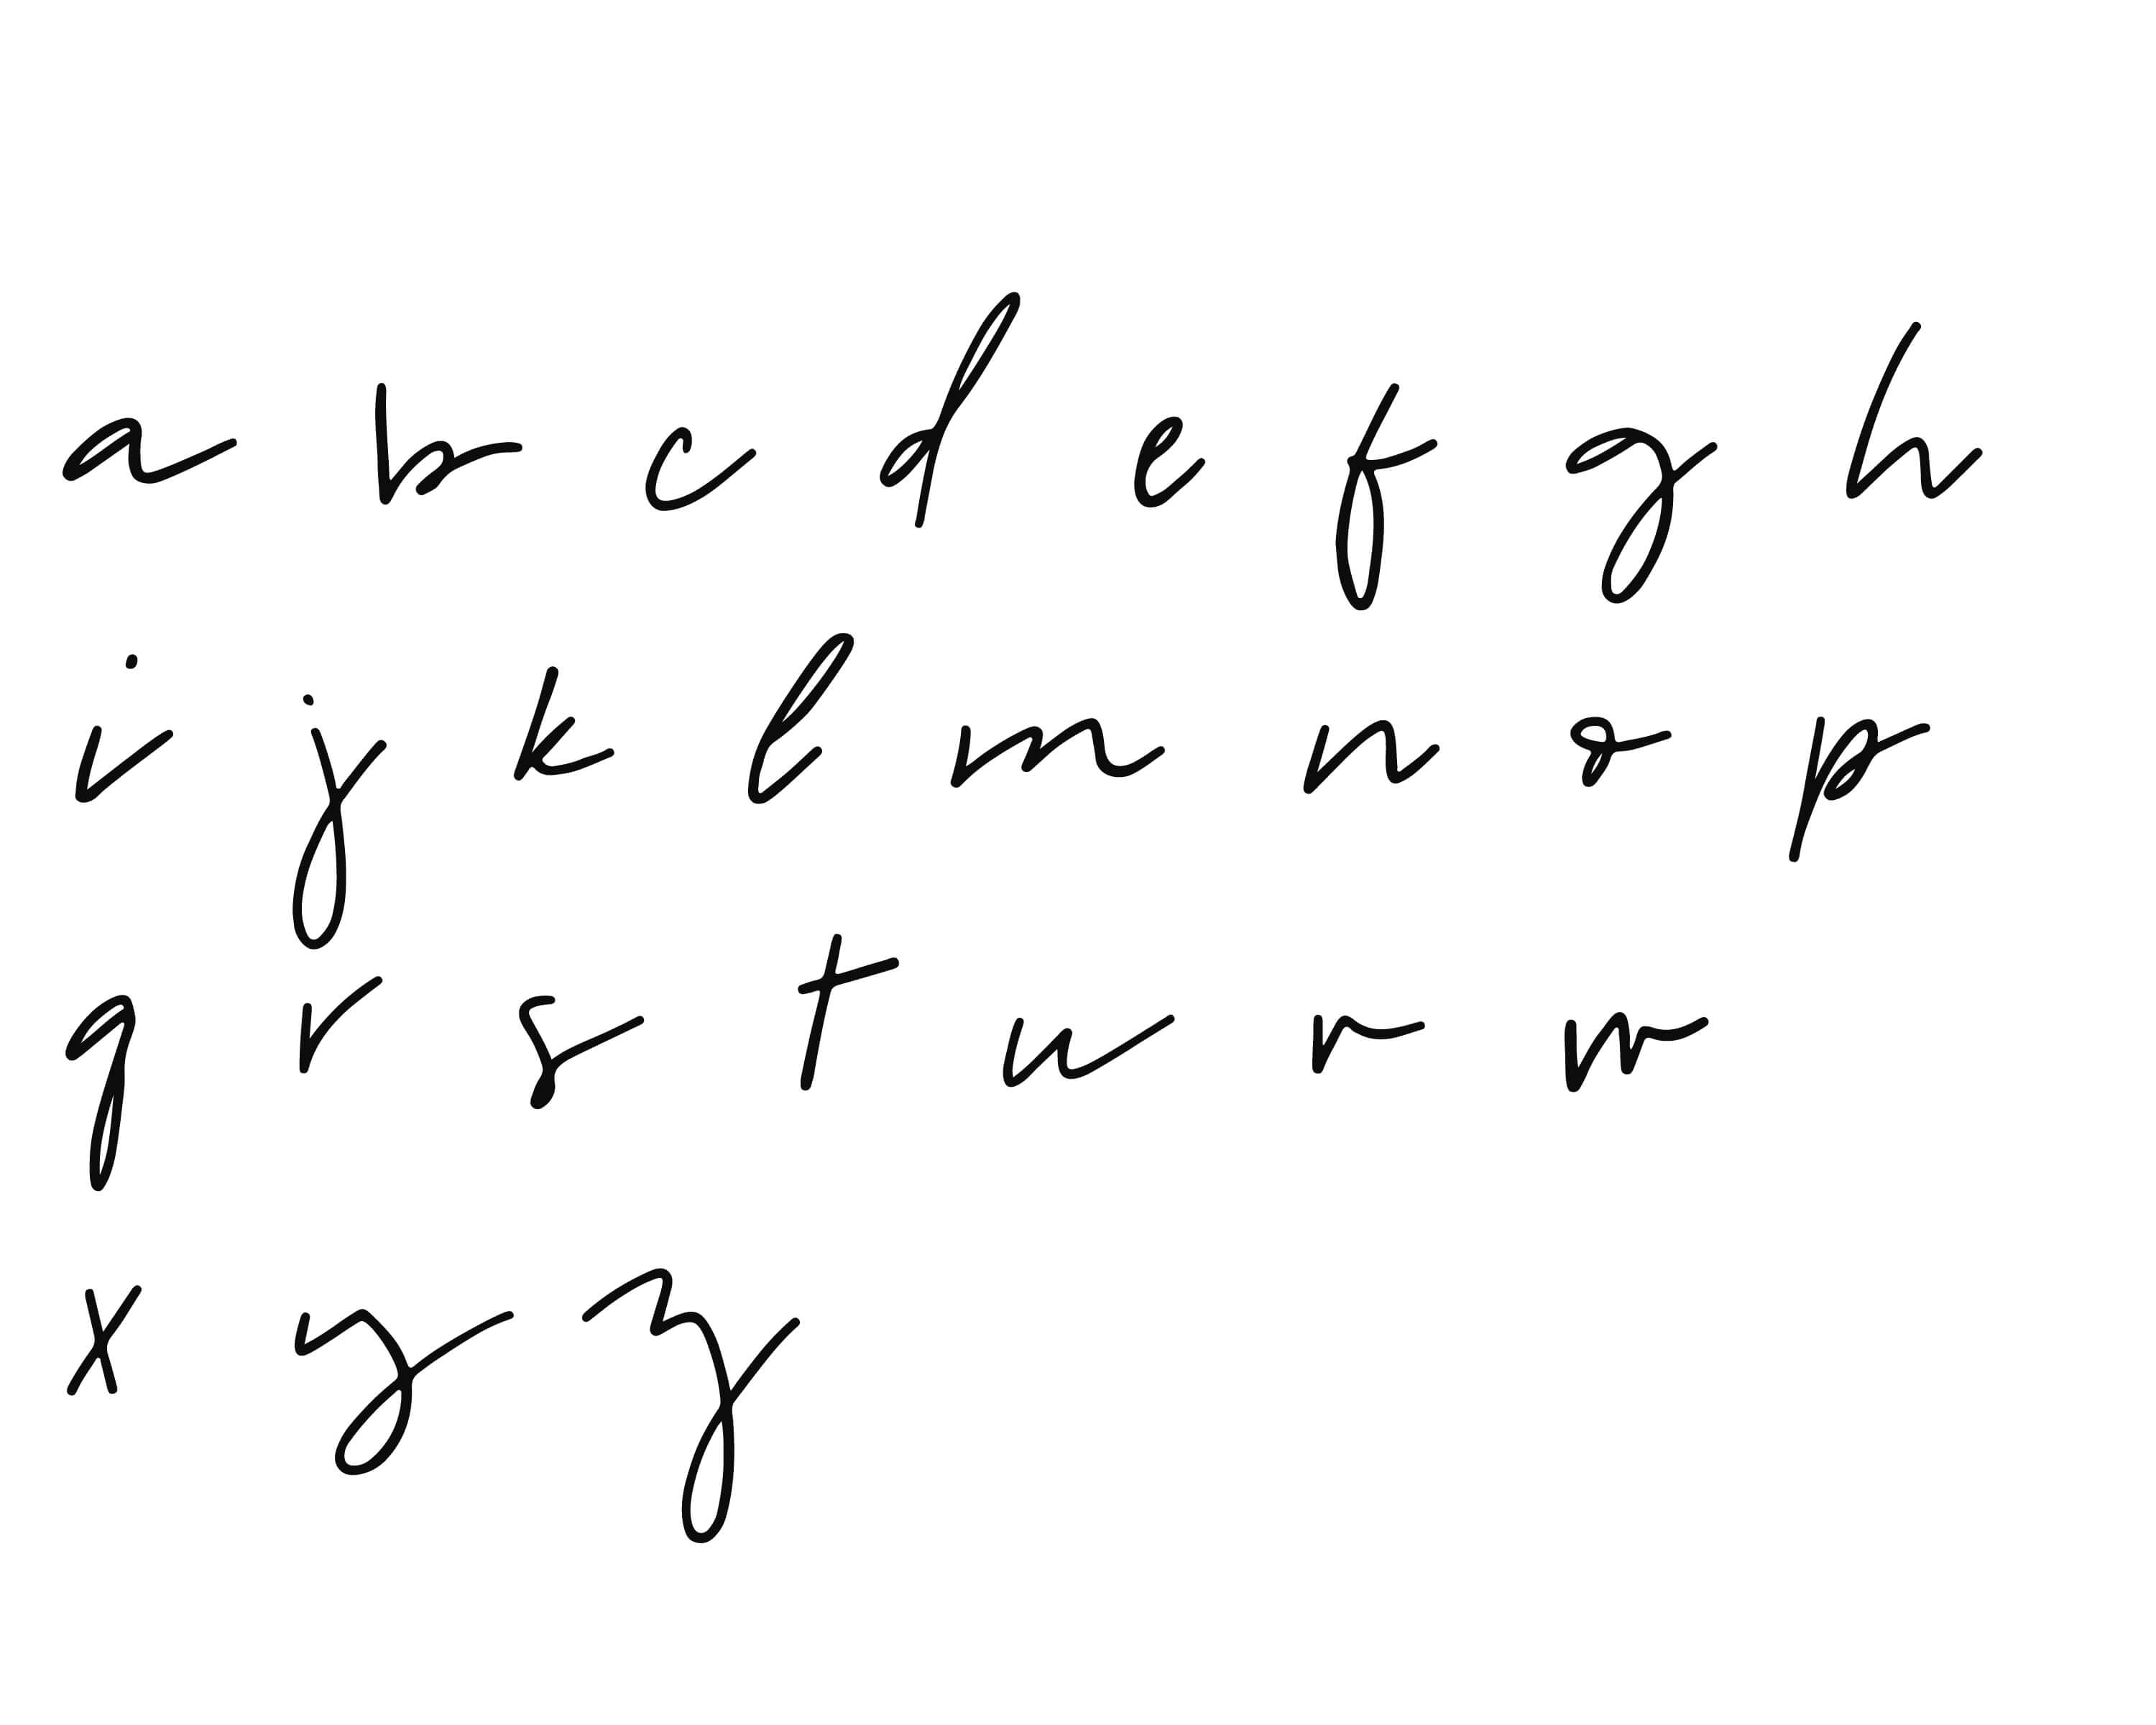 a b c d e f g h
i j k l m n o p
q r s t u v w
x y z